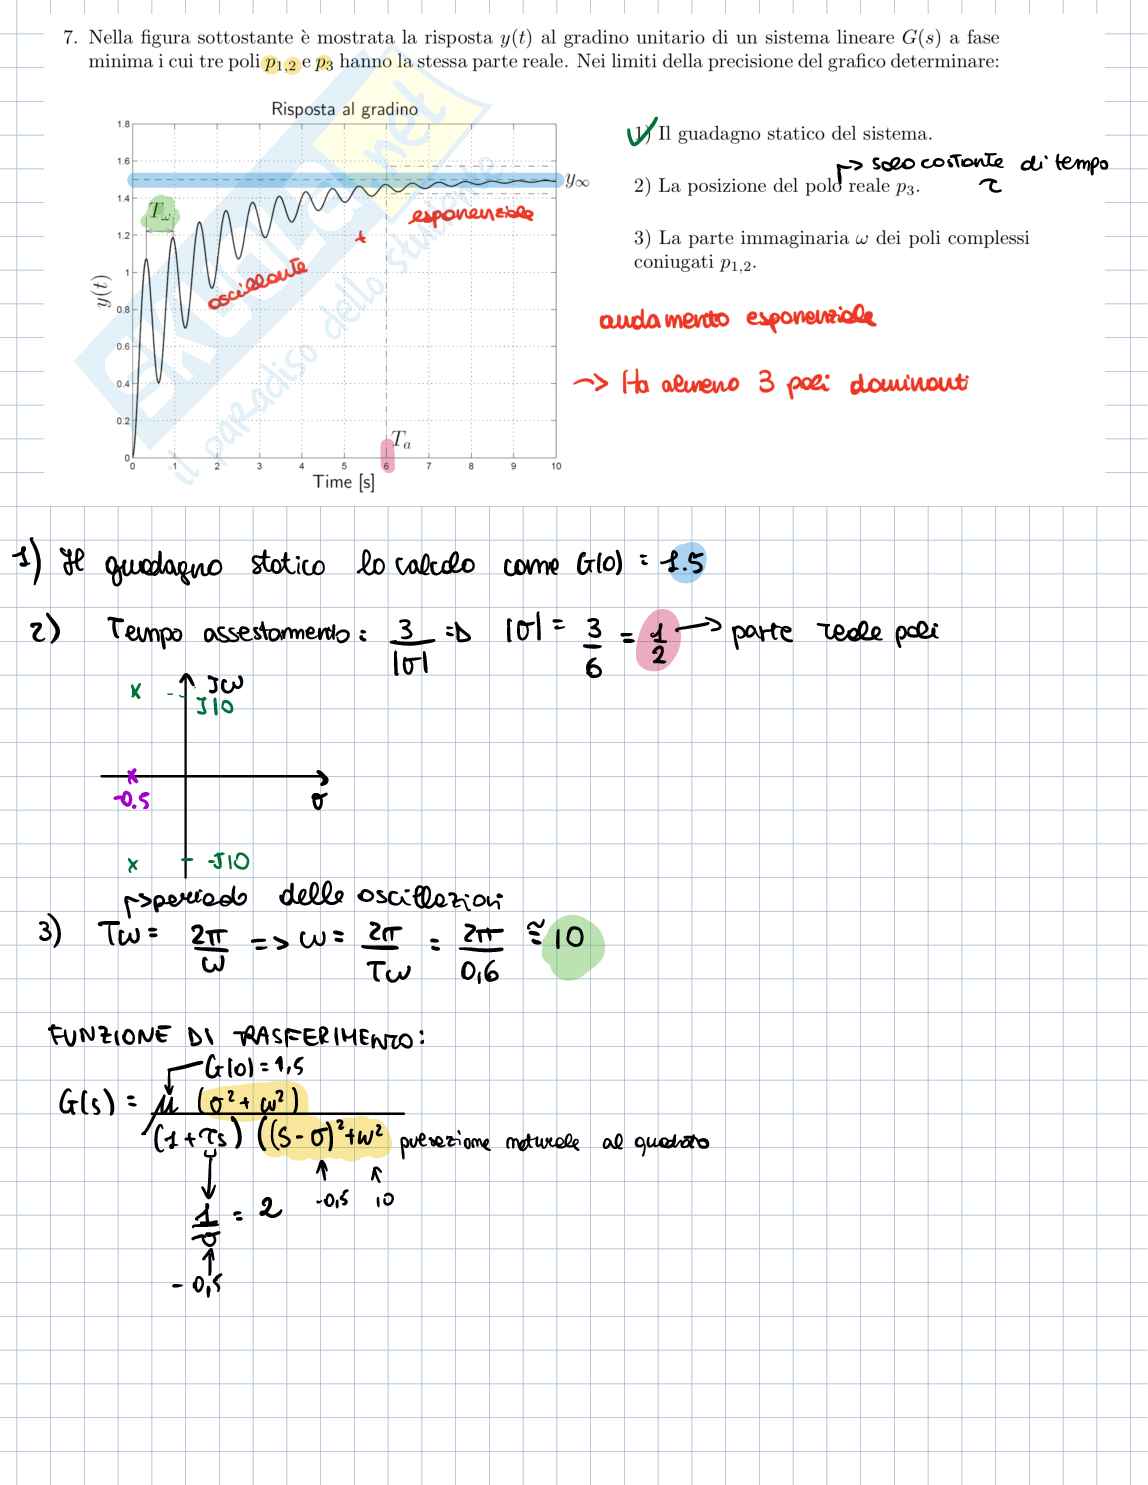 7. Nella figura sottostante è mostrata la risposta y(t) al gradino unitario di un sistema lineare G(s) a fase
minima i cui tre poli p1,2 e p3 hanno la stessa parte reale. Nei limiti della precisione del grafico determinare:
Risposta al gradino
1.8
1.6
1.4
1.2
1
0.8
0.6
0.4
0.2
0
y(t)
y∞
Tω
Ta
oscillante
+
esponenziale
0 1 2 3 4 5 6 7 8 9 10
Time [s]
SKUOLA.net
il paradiso dello studente
1) Il guadagno statico del sistema.
→ solo costante di tempo
τ
2) La posizione del polo reale p3.
3) La parte immaginaria ω dei poli complessi
coniugati p1,2.
andamento esponenziale
→ Ha almeno 3 poli dominanti
1) Il guadagno statico lo calcolo come G(0) = 1.5
2) Tempo assestamento: 3/|σ| => |σ| = 3/6 = 1/2 → parte reale poli
x
Jω
J10
x
-0.5
σ
x
-J10
→ periodo delle oscillazioni
3) Tω = 2π/ω => ω = 2π/Tω = 2π/0,6 ≅ 10
FUNZIONE DI TRASFERIMENTO:
G(0) = 1,5
G(s) = μ (σ² + ω²) / (1 + τs) ((s - σ)² + ω² pulsazione naturale al quadrato
-0,5 10
1/σ = 2
- 0,5